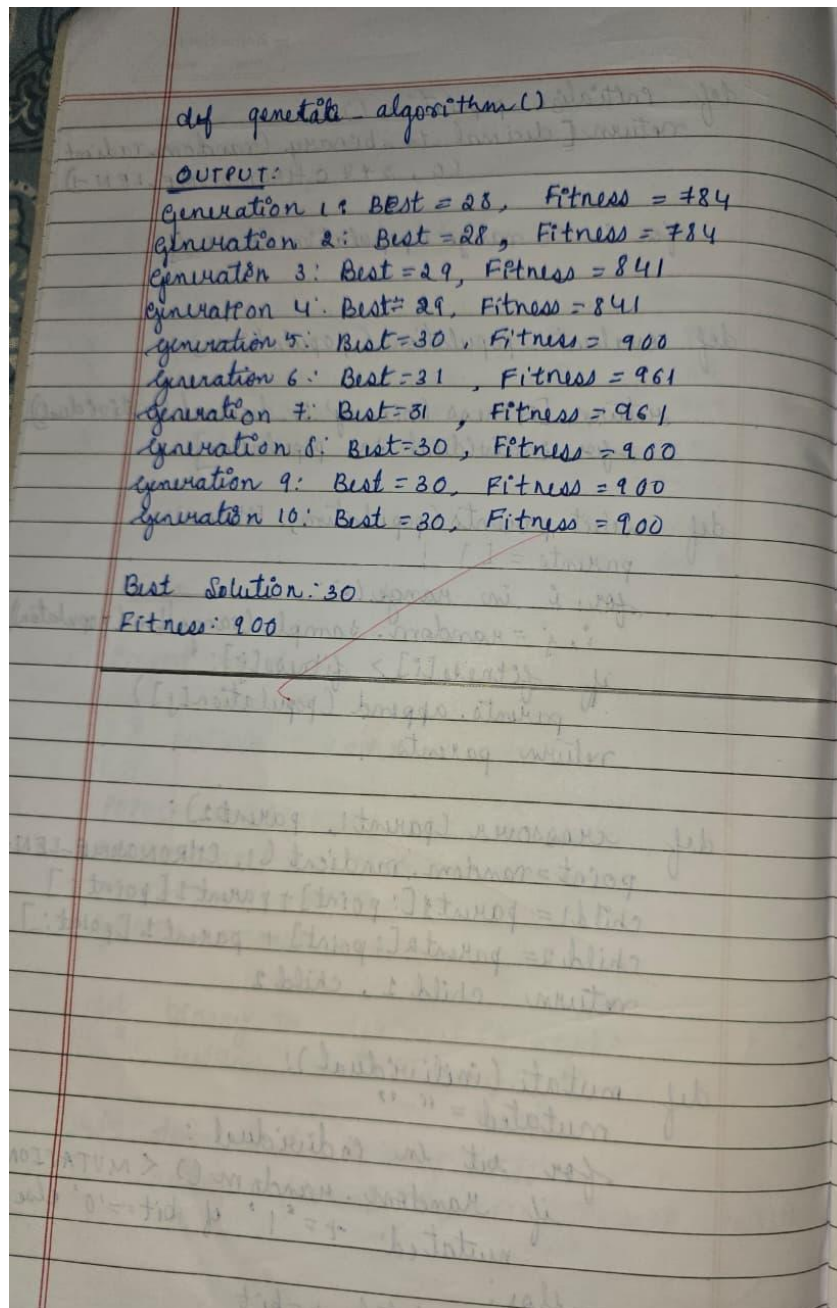 def genetate_algorithm()
OUTPUT:
Generation 1: Best = 28, Fitness = 784
Generation 2: Best = 28, Fitness = 784
Generation 3: Best = 29, Fitness = 841
Generation 4: Best = 29, Fitness = 841
Generation 5: Best = 30, Fitness = 900
Generation 6: Best = 31, Fitness = 961
Generation 7: Best = 31, Fitness = 961
Generation 8: Best = 30, Fitness = 900
Generation 9: Best = 30, Fitness = 900
Generation 10: Best = 30, Fitness = 900
Best Solution: 30
Fitness: 900